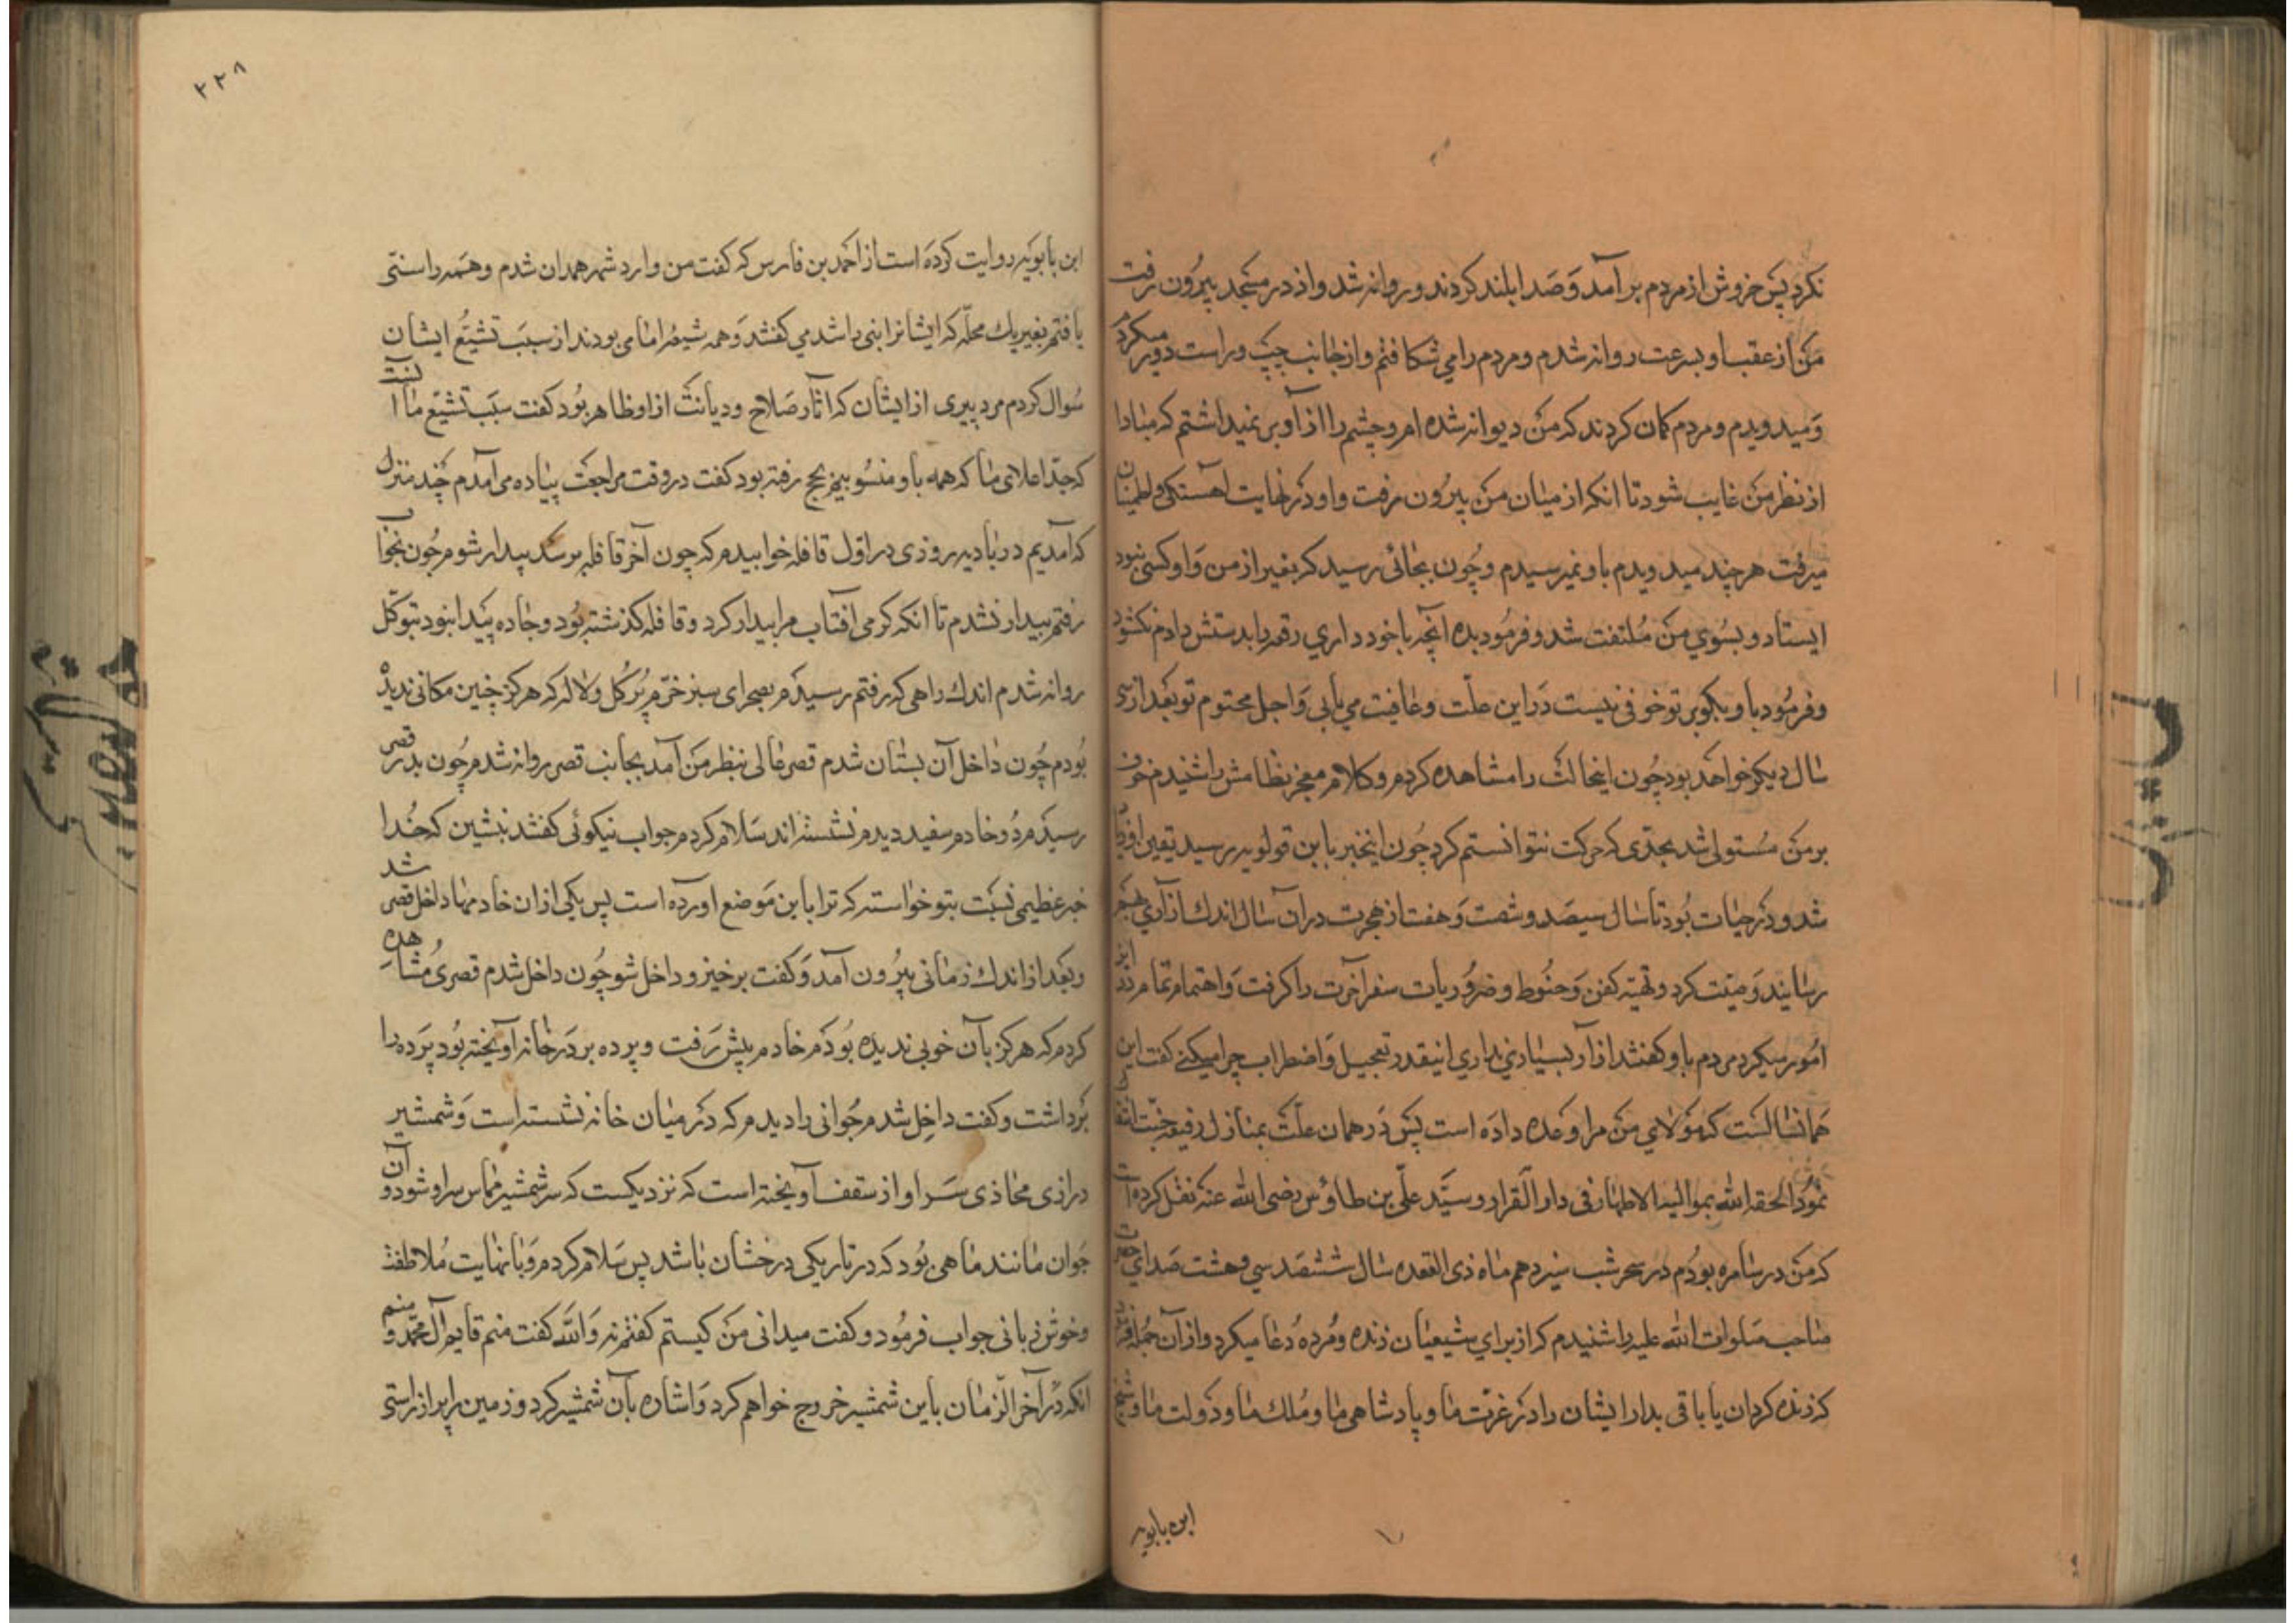 نکرد پس خروش از مردم برآمد و صدا بلند کردند و روانه شد و از در مسجد بیرون رفت
من از عقب او بسرعت روانه شدم و مردم را می شکافتم و از جانب چپ و راست دور میکردم
و میدویدم و مردم کمان کردند که من دیوانه شده ام و چشم را از او بر نمیداشتم که مبادا
از نظر من غایب شود تا انکه از میان من بیرون رفت و او در نهایت آهستکی و اطمینان
میرفت هر چند میدویدم باو نمیرسیدم و چون بجائی رسید که بغیر از من و او کسی نبود
ایستاد و بسوی من ملتفت شد و فرمود بده آنچه با خود داری رقعه را بدستش دادم نکشود
و فرمود باو بکو بر تو خوفی نیست در این علت و عافیت می یابی و اجل محتوم تو بعد از سی
سال دیکر خواهد بود چون اینحالت را مشاهده کردم و کلام معجز نظامش را شنیدم خوف
بر من مستولی شد بحدی که حرکت نتوانستم کرد چون اینخبر بابن قولویه رسید یقین او
شد و در حیات بود تا سال سیصد و شصت و هفت از هجرت در ان سال اندک آزاری
رسانید وصیت کرد و تهیه کفن و حنوط و ضروریات سفر آخرت را کرفت و اهتمام تمام در این
امور میکرد مردم باو کفتند ازار بسیاری نداری اینقدر تعجیل و اضطراب چرا میکنی کفت این
همانسالست که مولای من مرا وعده داده است پس در همان علت بمنازل رفیعه جنت انتقال
نمود الحقه الله بموالیه الاطهار فی دار القرار و سید علی بن طاوس رضی الله عنه نقل کرده است
که من در سامره بودم در سحر شب سیزدهم ماه ذی القعده سال ششصد سی و هشت صدای حضرت
صاحب صلوات الله علیه را شنیدم که از برای شیعیان زنده و مرده دعا میکرد و از آن جمله
که زنده کردان یا باقی بدار ایشان را در عزت ما و پادشاهی ما و ملک ما و دولت ما و
ابن بابویه
۲۲۸
ابن بابویه روایت کرده است از احمد بن فارس که کفت من وارد شهر همدان شدم و همه را سنی
یافتم بغیر یک محله که ایشانرا بنی راشد می کفتند و همه شیعه امامی بودند از سبب تشیع ایشان
سوال کردم مرد پیری از ایشان که آثار صلاح و دیانت از او ظاهر بود کفت سبب تشیع ما انست
که جد اعلای ما که همه باو منسوبیم بحج رفته بود کفت در وقت مراجعت پیاده می آمدم چند منزل
که آمدیم در بادیه روزی در اول قافله خوابیدم که چون آخر قافله برسد بیدار شوم چون بخواب
رفتم بیدار نشدم تا انکه کرمی آفتاب مرا بیدار کرد و قافله کذشته بود و جاده پیدا نبود بتوکل
روانه شدم اندک راهی که رفتم رسیدم بصحرای سبز خرم پر کل و لاله که هرکز چنین مکانی ندیده
بودم چون داخل آن بستان شدم قصر عالی بنظر من آمد بجانب قصر روانه شدم چون بدر قصر
رسیدم دو خادم سفید دیدم نشسته اند سلام کردم جواب نیکوئی کفتند بنشین که خدا
خیر عظیمی نسبت بتو خواسته که ترا باین موضع اورده است پس یکی از ان خادمها داخل قصر شد
و بعد از اندک زمانی بیرون آمد و کفت برخیز و داخل شو چون داخل شدم قصری مشاهده
کردم که هرکز بآن خوبی ندیده بودم خادم پیش رفت و پرده بر در خانه آویخته بود پرده را
برداشت و کفت داخل شدم جوانی را دیدم که در میان خانه نشسته است و شمشیر
درازی محاذی سر او از سقف آویخته است که نزدیکست که سر شمشیر مماس سر او شود و آن
جوان مانند ماهی بود که در تاریکی درخشان باشد پس سلام کردم و با نهایت ملاطفت
و خوش زبانی جواب فرمود و کفت میدانی من کیستم کفتم نه والله کفت منم قایم آل محمد و منم
انکه در آخر الزمان باین شمشیر خروج خواهم کرد و اشاره بآن شمشیر کرد و زمین را پر از راستی